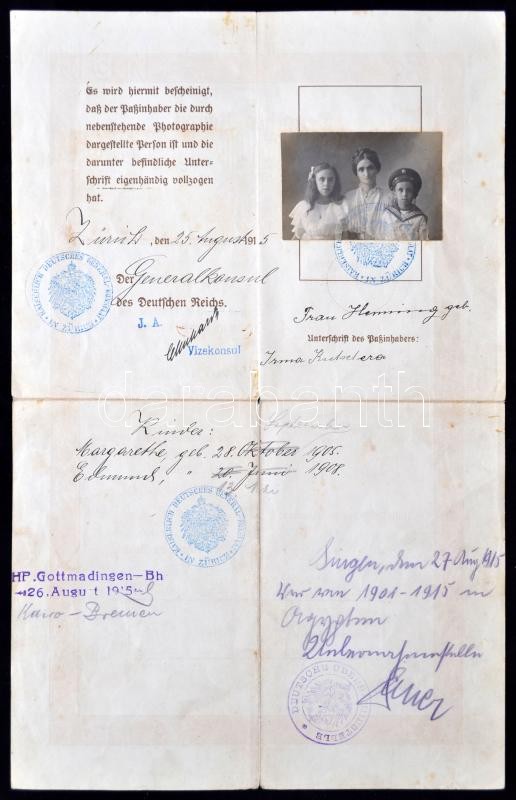 Es wird hiermit bescheinigt,
daß der Paßinhaber die durch
nebenstehende Photographie
dargestellte Person ist und die
darunter befindliche Unter-
schrift eigenhändig vollzogen
hat.
Zürich, den 25. August 1915
Der Generalkonsul
des Deutschen Reichs.
J. A.
Vizekonsul
KAISERLICH DEUTSCHES GENERAL-KONSULAT IN ZÜRICH
Frau Henning geb.
Unterschrift des Paßinhabers:
Irma Kutschera
darabanth
Kinder:
September
Margarethe, geb. 28. Oktober 1905.
Edmund, " 20. Juni 1908.
KAISERLICH DEUTSCHES GENERAL-KONSULAT IN ZÜRICH
HP. Gottmadingen-Bh
26. August 1915
Kairo - Bremen
Singen, den 27 Aug 1915
War von 1901-1915 in
Ägypten
DEUTSCHE